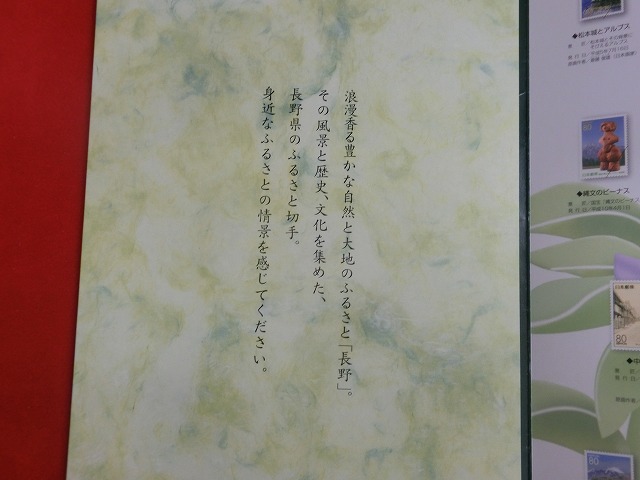 浪漫香る豊かな自然と大地のふるさと「長野」。
その風景と歴史、文化を集めた、
長野県のふるさと切手。
身近なふるさとの情景を感じてください。
◆松本城とアルプス
80
◆縄文のビーナス
日本郵便
80
80